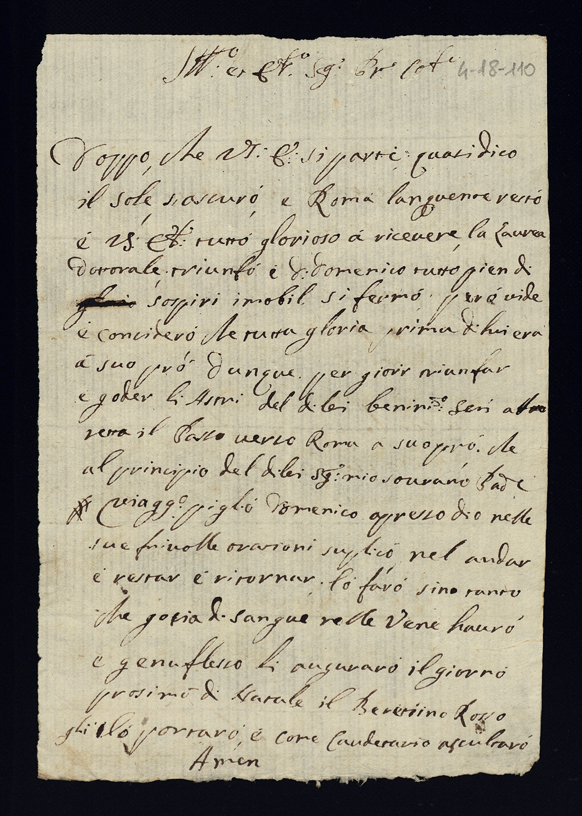 Ill.º et Ecc.º Sg.r 4-18-110
Doppo, che V.S. E. si partè quasi dico
il sole s'ascurò, e Roma languente restò
è V.S. Ecc. tutto glorioso à ricevere la Laurea
Dottorale triunfò è D. Domenico tutto pien di
sospiri imobil si fermò perè vide
è considerò che tutta gloria prima di lui era
à suo prò Dunque per gioir triunfar
e goder li Astri del di lei benini.º
retta il Passo verso Roma a suo prò. che
al principio del di lei Sg.r mio sourano Pad.e
viagg.º pigliò Domenico apresso dio nelle
sue frivolle orazioni suplicò nel andar
è restar è ritornar, lo farò sino tanto
che gocia di sangue nelle Vene haurò
e genuflesso li augurarò il giorno
prosimo di Natale il Beretino Rosso
gli lo portarò, è come Caudatario ascultarò
Amen